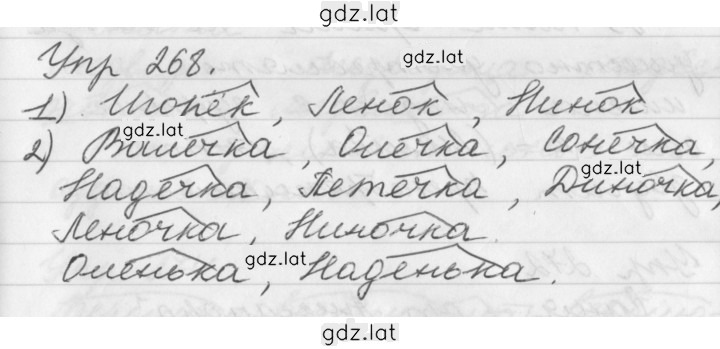 gdz.lat
Упр 268. gdz.lat
1) Игопёк, Ленок, Нинок
gdz.lat
2) Валечка, Олечка, Сонечка,
gdz.lat
Надечка, Петечка, Диночка,
Леночка, Ниночка.
Оленька, gdz.lat Наденька.
gdz.lat